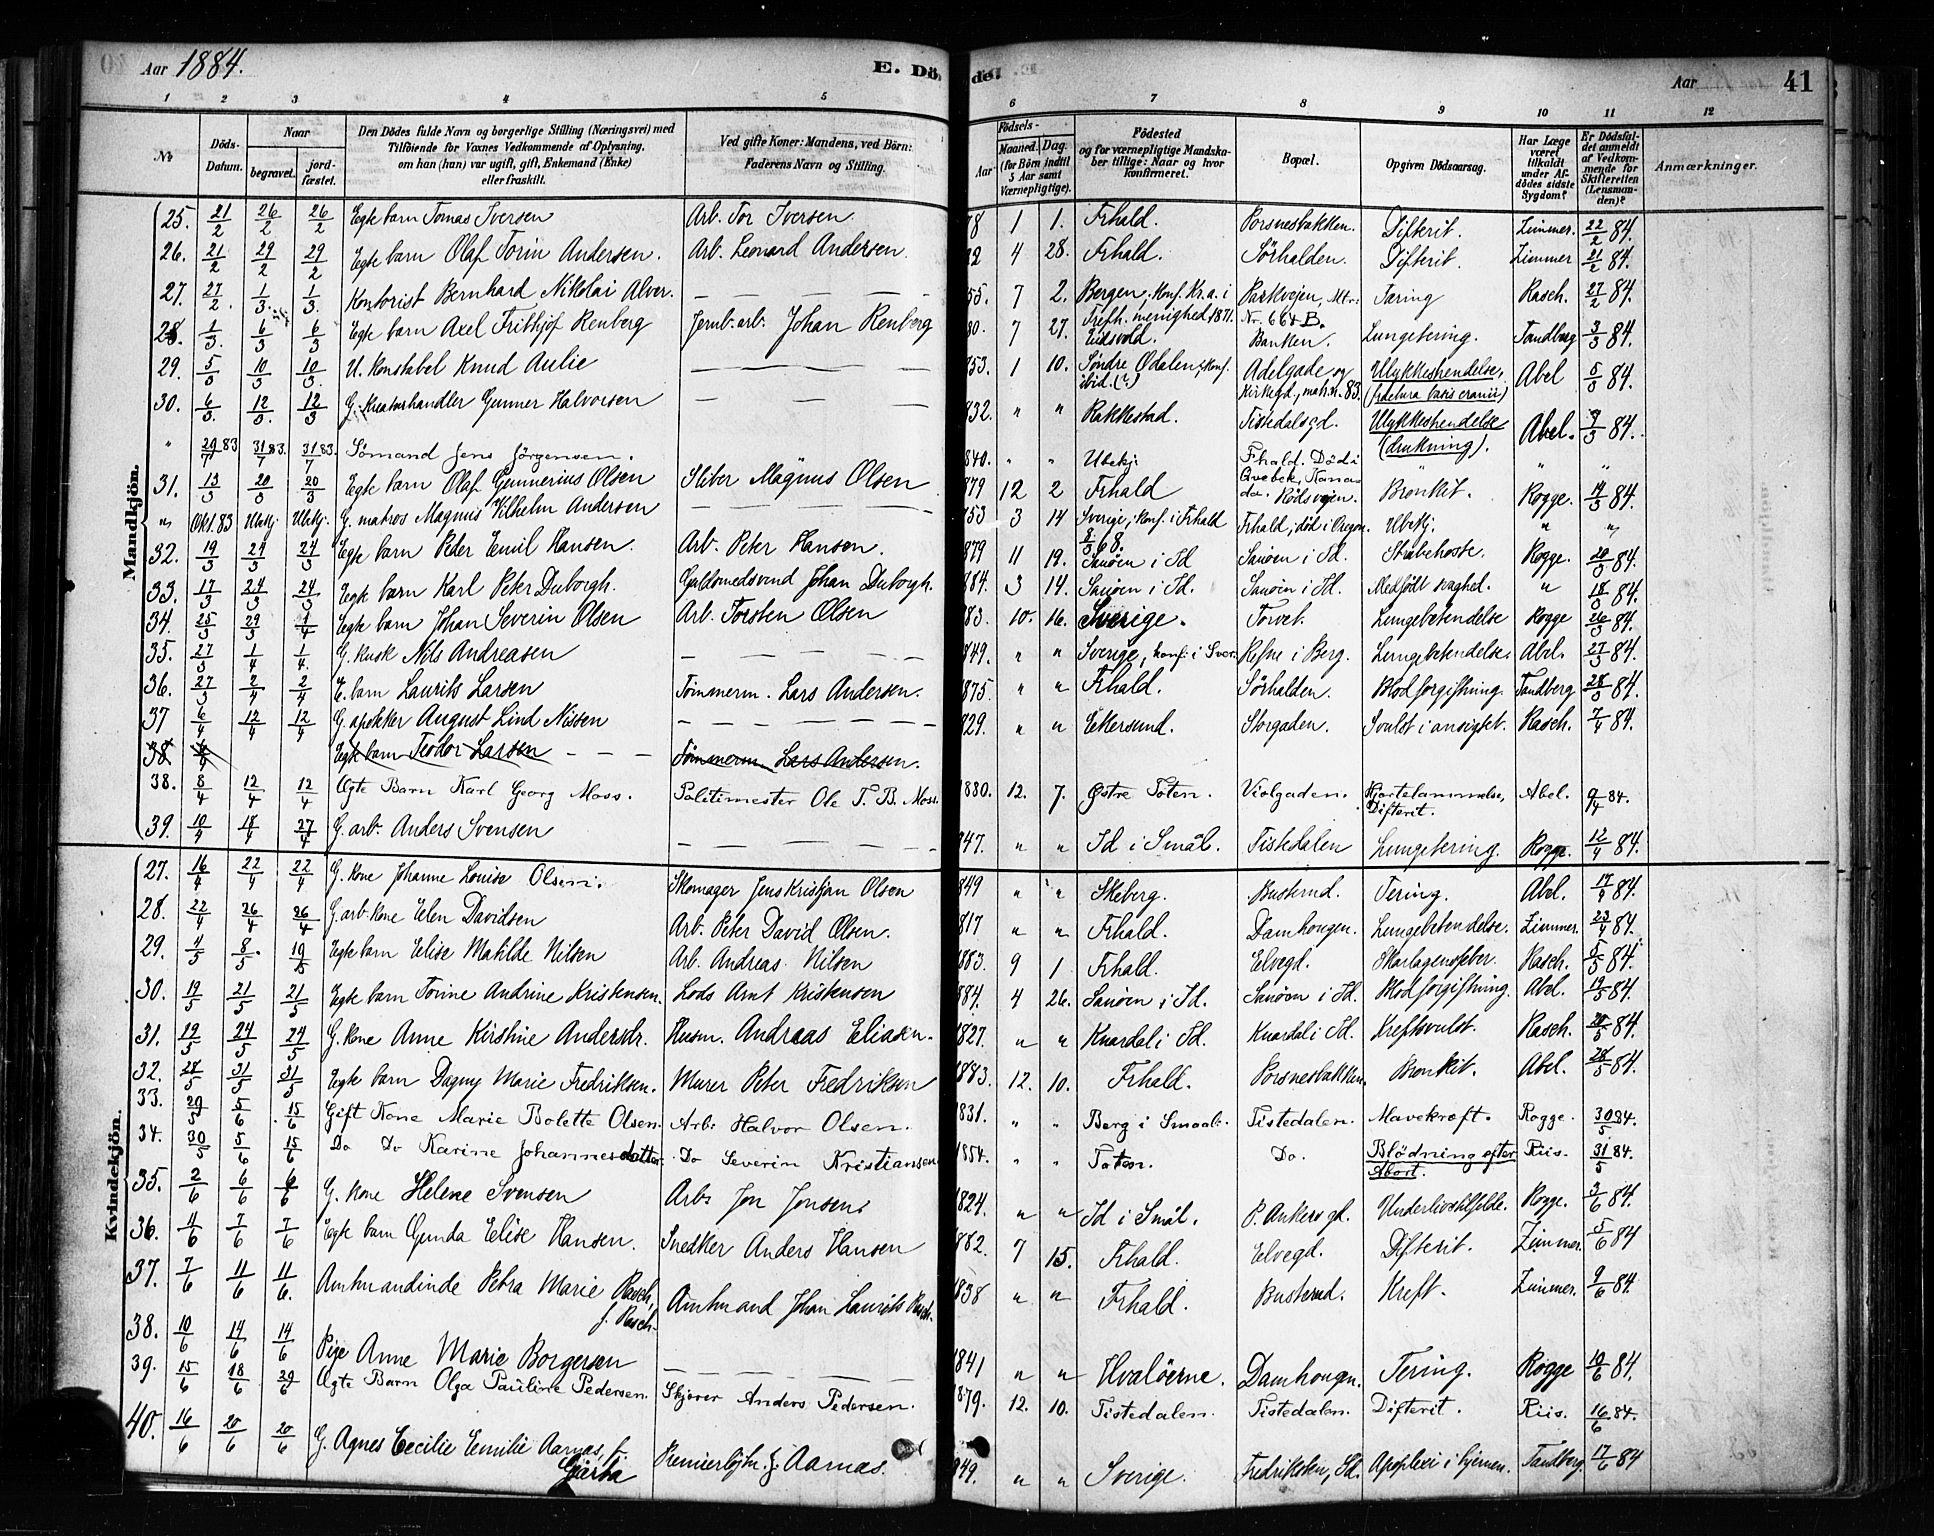 Aar 1884. E. Dö- de. Aar 41
1 2 3 4 5 6 7 8 9 10 11 12
No
Döds-Datum.
Naar
begravet.
jord-fæstet.
Den Dödes fulde Navn og borgerlige Stilling (Næringsvei) med
Tilföiende for Voxnes Vedkommende af Oplysning,
om han (hun) var ugift, gift, Enkemand (Enke)
eller fraskilt.
Ved gifte Koner: Mandens, ved Börn:
Faderens Navn og Stilling.
Födsels-
Aar. Maaned. Dag.
(for Börn indtil
5 Aar samt
Værnepligtige).
Födested
og for værnepligtige Mandska-
ber tillige: Naar og hvor
konfirmeret.
Bopæl.
Opgiven Dödsaarsag.
Har Læge
været
tilkaldt
under Af-
dödes sidste
Sygdom?
Er Dödsfal-
det anmeldt
af Vedkom-
mende for
Skifteretten
(Lensman-
den)?
Anmærkninger.
Mandkjön.
25. 21/2 26/2 26/2 Egte barn Tomas Iversen Arb. Tor Iversen 78 1 1. Frhald. Porsnesbakken. Difterit. Zimmer. 22/2 84.
26. 21/2 29/2 29/2 Egte barn Olaf Torin Andersen. Arb. Leonard Andersen 82 4 28. Frhald. Sörhalden. Difterit. Zimmer 21/2 84.
27. 27/2 1/3. 1/3. Kontorist Bernhard Nikolai Alver. — — — — 55. 7 2. Bergen, Konf. Kr.a. i Trefh. menighed 1871. Parkvejen, Mt.: Nr. 664 B. Tæring Rasch. 27/2 84.
28. 1/3. 6/3 6/3 Egte barn Axel Frithjof Renberg Jernb. arb. Johan Renberg 80. 7 27. Eidsvold. Banken. Lungetering. Tandberg 3/3 84.
29. 5/3 10/3 10/3. U. Konstabel Knud Aulie — — — — 853. 1 10. Söndre Odalen, Konf. ibid. (?) Adelgade og Kirkegd, matr.n. 83. Ulykkeshendelse, (fractura basis cranii) Abel 5/3 84.
30. 6/3. 12/3. 12/3 G. Kreaturhandler Gunner Halvorsen — — — 832. " " Rakkestad. Tistedalsgd. Ulykkeshendelse (drukning). Abel. 7/3 84.
" 29/7 83 31/7 83. 31/7 83. Sömand Jens Jörgensen. 840. " " Ubekj. Frhald. Död i Qvebek, Kanada. " "
31. 13/3 20/3 20/3 Egte barn Olaf Gunnerius Olsen Sliber Magnus Olsen 879 12 2 Frhald Rödsvejen. Bronkit. Rogge. 14/3 84.
" Okt. 83 Ubekj. Ubekj. G. matros Magnus Vilhelm Andersen — — — 853 3 14 Sverige, konf. i Frhald 8/3 68. Frhald, död i Oregon. Ubekj. " "
32. 19/3 24/3 24/3 Egte barn Peder Emil Hansen. Arb. Peter Hansen. 879 11 19. Sauöen i Id Sauöen i Id. Strubehoste. Rogge. 20/3 84.
33. 17/3 24/3 24/3 Egte barn Karl Peter Duborgh. Guldsmedsvend Johan Duborgh. 884. 3 14. Sauöen i Id. Sauöen i Id. Medfödt svaghed. " 18/3 84.
34. 25/3 29/3 1/4 Egte barn Johan Severin Olsen Arb. Torsten Olsen 83. 10. 16. Sverige. Torvet. Lungebetendelse Rogge 26/3 84.
35. 27/3 1/4 1/4. G. Kusk Nils Andreasen — — — — 849. " " Sverige, konf. i Sver. Refne i Berg. Lungebetendelse. Abel. 27/3 84.
36. 27/3 2/4 2/4 E. barn Laurits Larsen Tömmerm. Lars Andersen. 1875 " " Frhald. Sörhalden. Blodforgiftning. Tandberg 28/3 84.
37 6/4 12/4 12/4 G. apoteker August Lind Nissen — — — — 829. " " Ekersund. Storgaden. Svulst i ansigtet. Rasch. 7/4 84.
38 Egte barn Teodor Larsen — — — Tömmerm. Lars Andersen.
38. 8/4 12/4 12/4 Ægte Barn Karl Georg Moss. Politimester Ole T. B. Moss. 1880. 12. 7. Östre Toten. Violgaden. Hjertelammelse, Difterit. Abel. 9/4 84.
39. 10/4 18/4 27/4 G. arb. Anders Svensen — — — — 847. " " Id i Smål. Tistedalen Lungetering. Rogge. 12/4 84.
Kvindekjön.
27. 16/4 22/4 22/4 G. Kone Johanne Louise Olsen. Skomager Jens Kristjan Olsen 849 " " Skeberg. Busterud. Tering. Abel. 17/4 84.
28. 22/4 26/4 26/4 G. arb. Kone Elen Davidsen Arb. Peter David Olsen. 817 " " Frhald. Damhougen. Lungebetendelse. Zimmer. 23/4 84.
29. 4/5 8/5. 19/5 Egte barn Elise Matilde Nilsen Arb. Andreas Nilsen 1883. 9 1 Frhald. Elvegd. Skarlagensfeber. Rasch. 5/5 84.
30. 19/5 21/5 21/5 Egte barn Torine Andrine Kristensen. Lods Arnt Kristensen 884. 4 26. Sauöen i Id. Sauöen i Id. Blodforgiftning. Abel. 19/5 84.
31. 19/5 24/5 24/5 G. Kone Anne Kirstine Andersdr. Husm. Andreas Eliasen. 1827. " " Knardal i Id. Knardal i Id. Kreftsvulst. Rasch. 20/5 84.
32. 28/5 31/5 31/5 Egte barn Dagny Marie Fredriksen. Murer Peter Fredriksen 1883. 12. 10. Frhald. Porsnesbakken. Bronkit. Abel. 28/5 84.
33. 29/5 5/6 15/6 Gift Kone Marie Bolette Olsen. Arb: Halvor Olsen. 1831. " " Berg i Smaal. Tistedalen. Mavekræft. Rogge. 30/5 84.
34. 30/5 5/6 15/6 Do Do Karine Johannesdatter. Do Severin Kristiansen 1854. " " Toten. Do. Blödning efter Abort. Riis. 31/5 84.
35. 2/6 6/6 6/6 G. Kone Helene Svensen Arb. Jon Jonsen. 1824. " " Id i Smål. P. Ankers gd. Underlivstilfelde. Rogge. 3/6 84.
36. 4/6 7/6 7/6 Egte barn Gunda Elise Hansen. Snedker Anders Hansen 882. 7 15. Frhald. Elvegd. Difterit. Zimmer. 5/6 84
37. 7/6 11/6 11/6. Amtmandinde Petra Marie Rasch, f. Rasch Amtmand Johan Laurits Rasch. 838 " " Frhald. Busterud. Kreft. Zimmer. 9/6 84.
38. 10/6 14/6 14/6 Pige Anne Marie Borgersen — — — — 1841 " " Hvalöerne. Damhougen. Tering. Rogge 10/6 84.
39. 15/6 18/6 29/6 Ægte Barn Olga Pauline Pedersen. Skjærer Anders Pedersen. 1879. 12. 10. Tistedalen. Tistedalen. Difterit. Riis. 16/6 84.
40. 16/6 20/6 20/6 G. Agnes Cecilie Emilie Aarnæs, f. Gjærta Premierløjtn. J. Aarnæs. 849. " " Sverige. Fredriksten, Id. Apoplexi i hjernen. Tandberg. 17/6 84